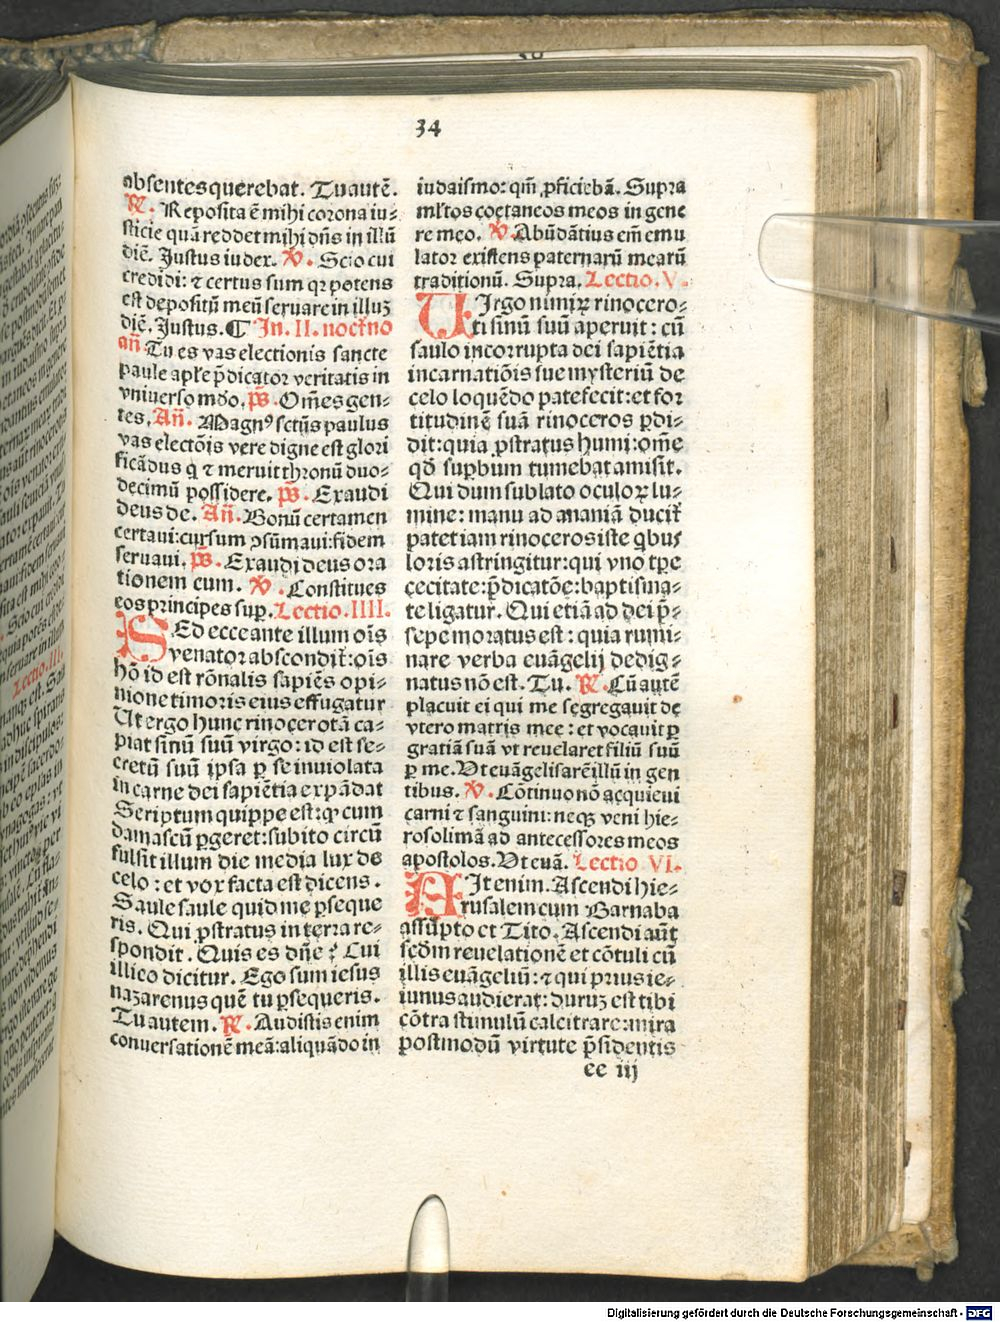 34
absentes querebat. Tu autē.
℟. Reposita ē mihi corona iu⸗
sticie quā reddet mihi dn̄s in illū
diē. Justus iudex. ℣. Scio cui
credidi: ⁊ certus sum qꝛ potens
est depositū meū seruare in illuꝫ
diē. Justus. ¶ In. II. nocťno
an̄. Tu es vas electionis sancte
paule aple p̄dicator veritatis in
vniuerso mūdo. ps̄. Om̄es gen⸗
tes. An̄. Magnꝰ sctūs paulus
vas electōis vere digne est glori
ficādus q ⁊ meruit thronū duo⸗
decimū possidere. ps̄. Exaudi
deus de. An̄. Bonū certamen
certaui: cursum ꝯsūmaui: fidem
seruaui. ps̄. Exaudi deus ora
tionem cum. ℣. Constitues
eos principes sup. Lectio. IIII.
SEd ecce ante illum oīs
venator abscondit̄: oīs
hō id est rōnalis sapiēs opi⸗
nione timoris eius effugatur
Ut ergo hunc rinocerotā ca⸗
piat sinū suū virgo: id est se⸗
cretū suū ipsa ꝑ se inuiolata
in carne dei sapiētia expādat
Scriptum quippe est: ꝙ cum
damascū ꝑgeret: subito circū
fulsit illum die media lux de
celo: et vox facta est dicens.
Saule saule quid me ꝑseque
ris. Qui ꝓstratus in terra re⸗
spondit. Quis es dn̄e? Cui
illico dicitur. Ego sum iesus
nazarenus quē tu ꝑsequeris.
Tu autem. ℟. Audistis enim
conuersationē meā: aliquādo in
iudaismo: qm̄ ꝓficiebā. Supra
mľtos coetaneos meos in gene
re meo. ℣. Abūdātius em̄ emu
lator existens paternarū mearū
traditionū. Supra. Lectio. V.
UIrgo nimiꝝ rinocero⸗
ti sinū suū aperuit: cū
saulo incorrupta dei sapiētia
incarnatiōis sue mysteriū de
celo loquēdo patefecit: et for
titudinē suā rinoceros ꝑdi⸗
dit: quia ꝓstratus humi: om̄e
qd̄ suꝑbum tumebat amisit.
Qui dum sublato oculoꝝ lu⸗
mine: manu ad ananiā ducit̄
patet iam rinoceros iste qͥbus
loris astringitur: qui vno tꝑe
cecitate: p̄dicatōe: baptisma⸗
te ligatur. Qui etiā ad dei p̄⸗
sepe moratus est: quia rumi⸗
nare verba euāgelij dedig⸗
natus nō est. Tu. ℟. Cū autē
placuit ei qui me segregauit de
vtero matris mee: et vocauit ꝑ
gratiā suā vt reuelaret filiū suū
ꝑ me. Vt euāgelisarē illū in gen
tibus. ℣. Cōtinuo nō acquieui
carni ⁊ sanguini: neqꝫ veni hie⸗
rosolimā ad antecessores meos
apostolos. Vt euā. Lectio VI.
AIt enim. Ascendi hie⸗
rusalem cum Barnaba
assūpto et Tito. Ascendi aūt
scd̄m reuelationē et cōtuli cū
illis euāgeliū: ⁊ qui prius ie⸗
iunus audierat: duruꝫ est tibi
cōtra stimulū calcitrare: mira
postmodū virtute p̄sidentis
ee iij
Digitalisierung gefördert durch die Deutsche Forschungsgemeinschaft - DFG